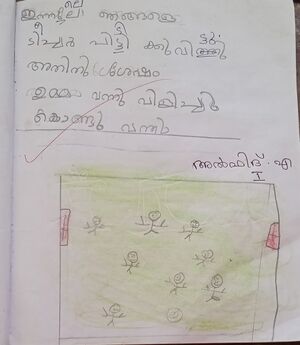 ഇന്നലെ ഞങ്ങളെ
ടീച്ചർ പിട്ടിക്കു വിട്ടു.
അതിനു ശേഷം
ഉമ്മ വന്നു വിളിച്ചു
കൊണ്ടു വന്നു
അൽഫിദ്. എ
I